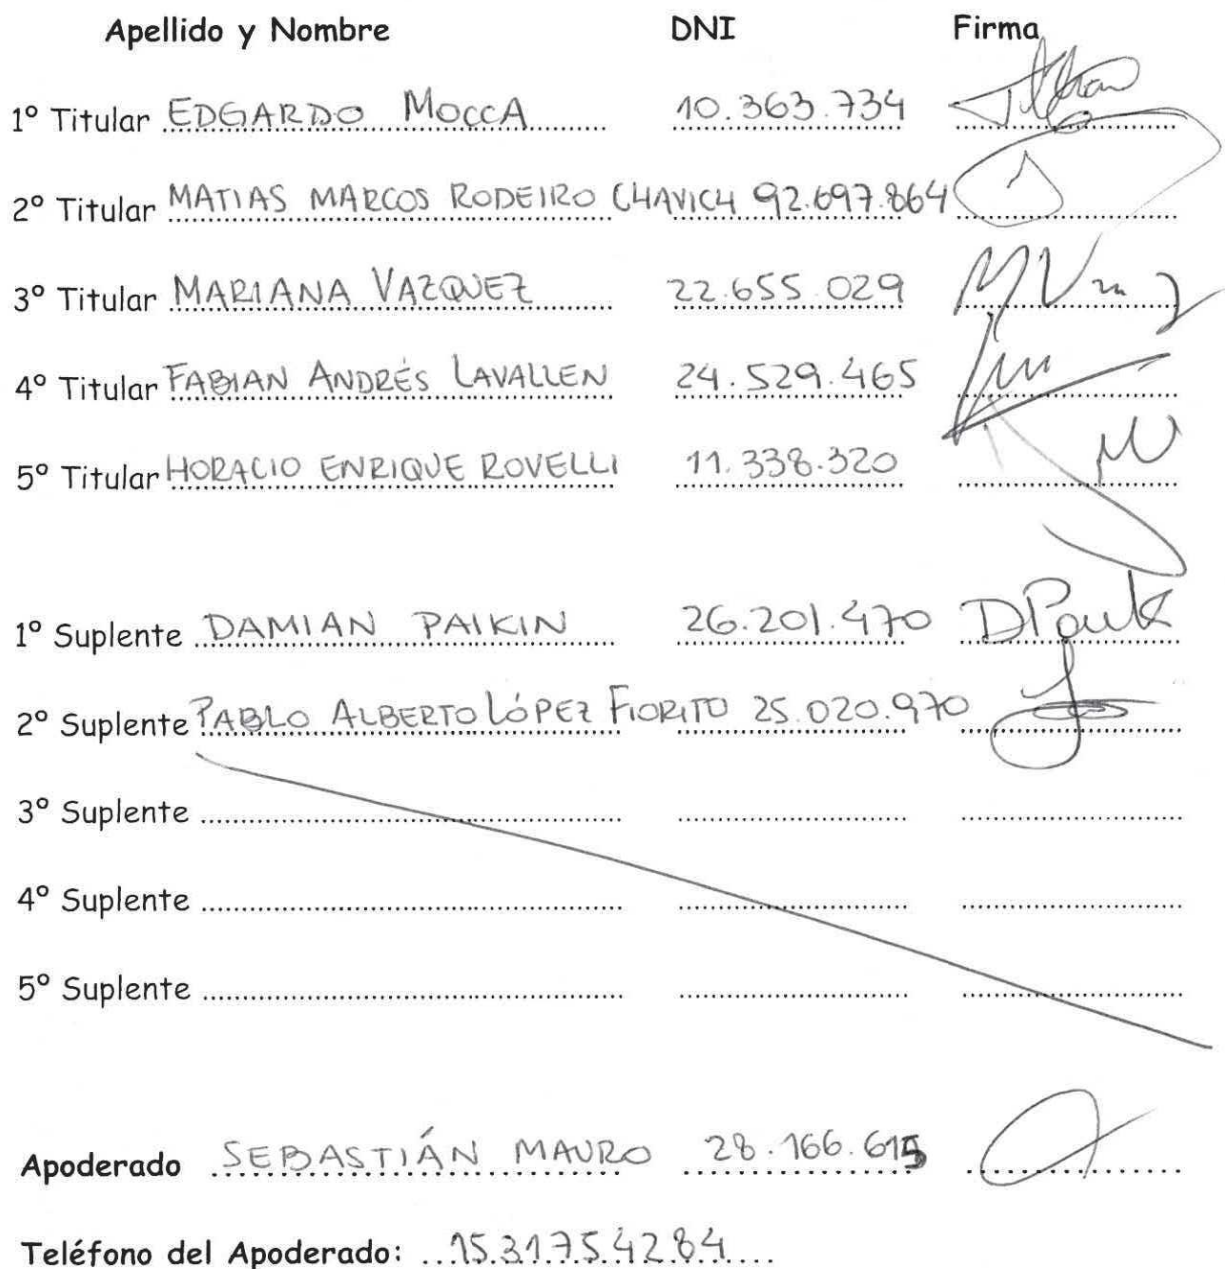 Apellido y Nombre DNI Firma
1º Titular EDGARDO MOCCA 10.363.734
2º Titular MATIAS MARCOS RODEIRO CHAVICH 92.697.864
3º Titular MARIANA VAZQUEZ 22.655.029
4º Titular FABIAN ANDRÉS LAVALLEN 24.529.465
5º Titular HORACIO ENRIQUE ROVELLI 11.338.320
1º Suplente DAMIAN PAIKIN 26.201.470
2º Suplente PABLO ALBERTO LÓPEZ FIORITO 25.020.970
3º Suplente
4º Suplente
5º Suplente
Apoderado SEBASTIÁN MAURO 28.166.615
Teléfono del Apoderado: 1531754284